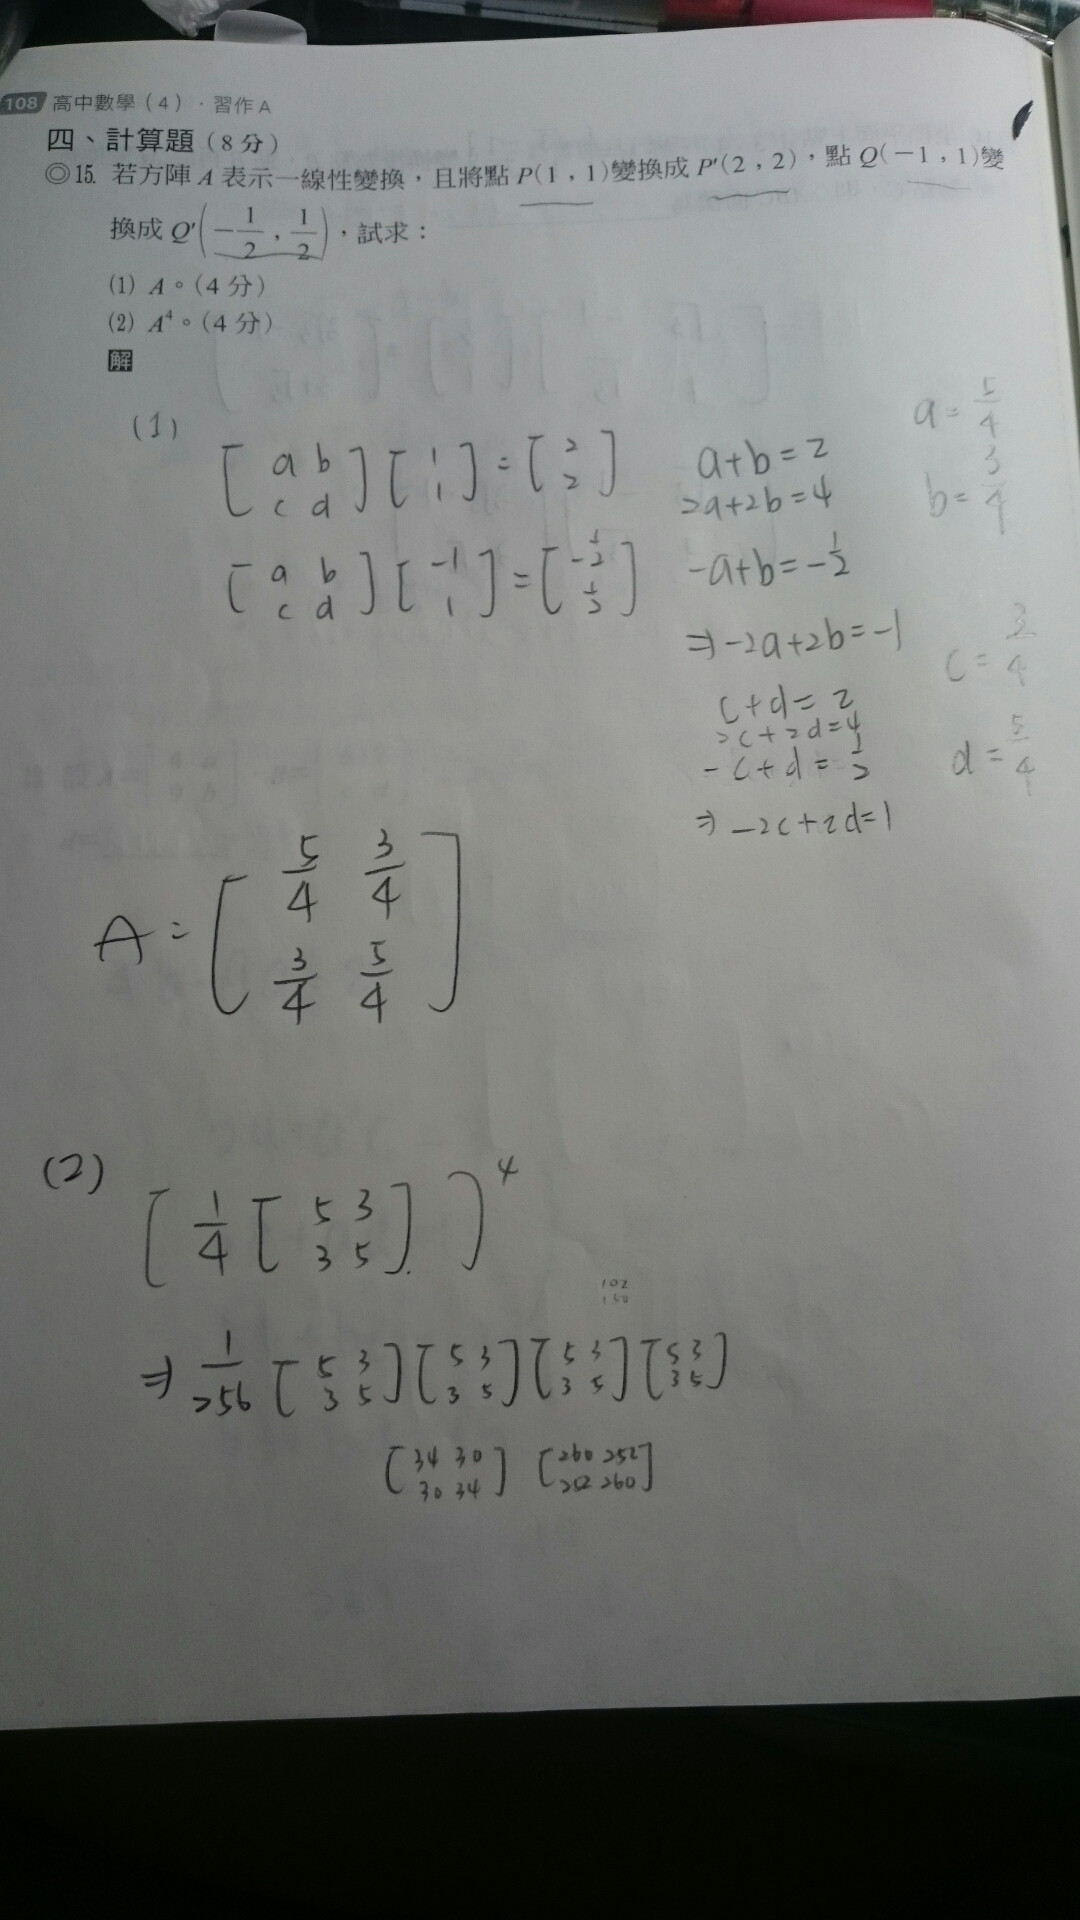 108 高中數學(4)．習作A
四、計算題(8分)
◎15. 若方陣 A 表示一線性變換，且將點 P(1，1)變換成 P'(2，2)，點 Q(－1，1)變
換成 Q'(－1/2，1/2)，試求：
(1) A。(4分)
(2) A⁴。(4分)
解
(1)
[a b; c d][1; 1]=[2; 2]
[a b; c d][-1; 1]=[-1/2; 1/2]
a+b=2
2a+2b=4
-a+b=-1/2
⇒-2a+2b=-1
c+d=2
2c+2d=4
-c+d=1/2
⇒-2c+2d=1
a=5/4
b=3/4
c=3/4
d=5/4
A=[5/4 3/4; 3/4 5/4]
(2)
[1/4[5 3; 3 5]]⁴
102
150
⇒1/256[5 3; 3 5][5 3; 3 5][5 3; 3 5][5 3; 3 5]
[34 30; 30 34] [260 252; 252 260]